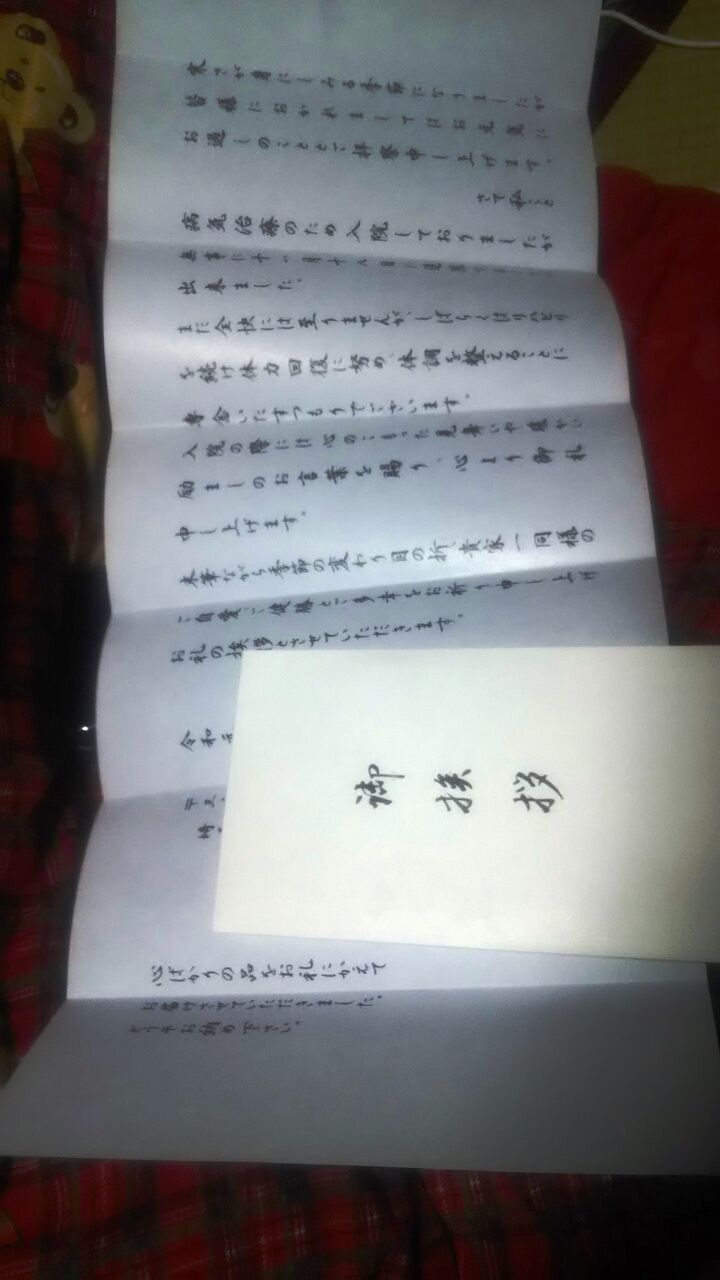 寒さが身にしみる季節になりましたが
皆様におかれましてはお元気に
お過しのことと、拝察申し上げます。
さて私こと
病気治療のため入院しておりましたが
無事に十一月十八日に退院
出来ました。
まだ全快には至りませんが、しばらくはリハビリ
を続け体力回復に努め、体調を整えることに
専念いたすつもりでございます。
入院の際には心のこもった見舞いや暖かい
励ましのお言葉を賜り、心より御礼
申し上げます。
末筆ながら季節の変わり目の折、貴家一同様の
ご自愛、ご健勝とご多幸をお祈り申し上げ
お礼の挨拶とさせていただきます。
令和
心ばかりの品をお礼にかえて
お届けさせていただきました。
どうぞお納め下さい。
御挨拶